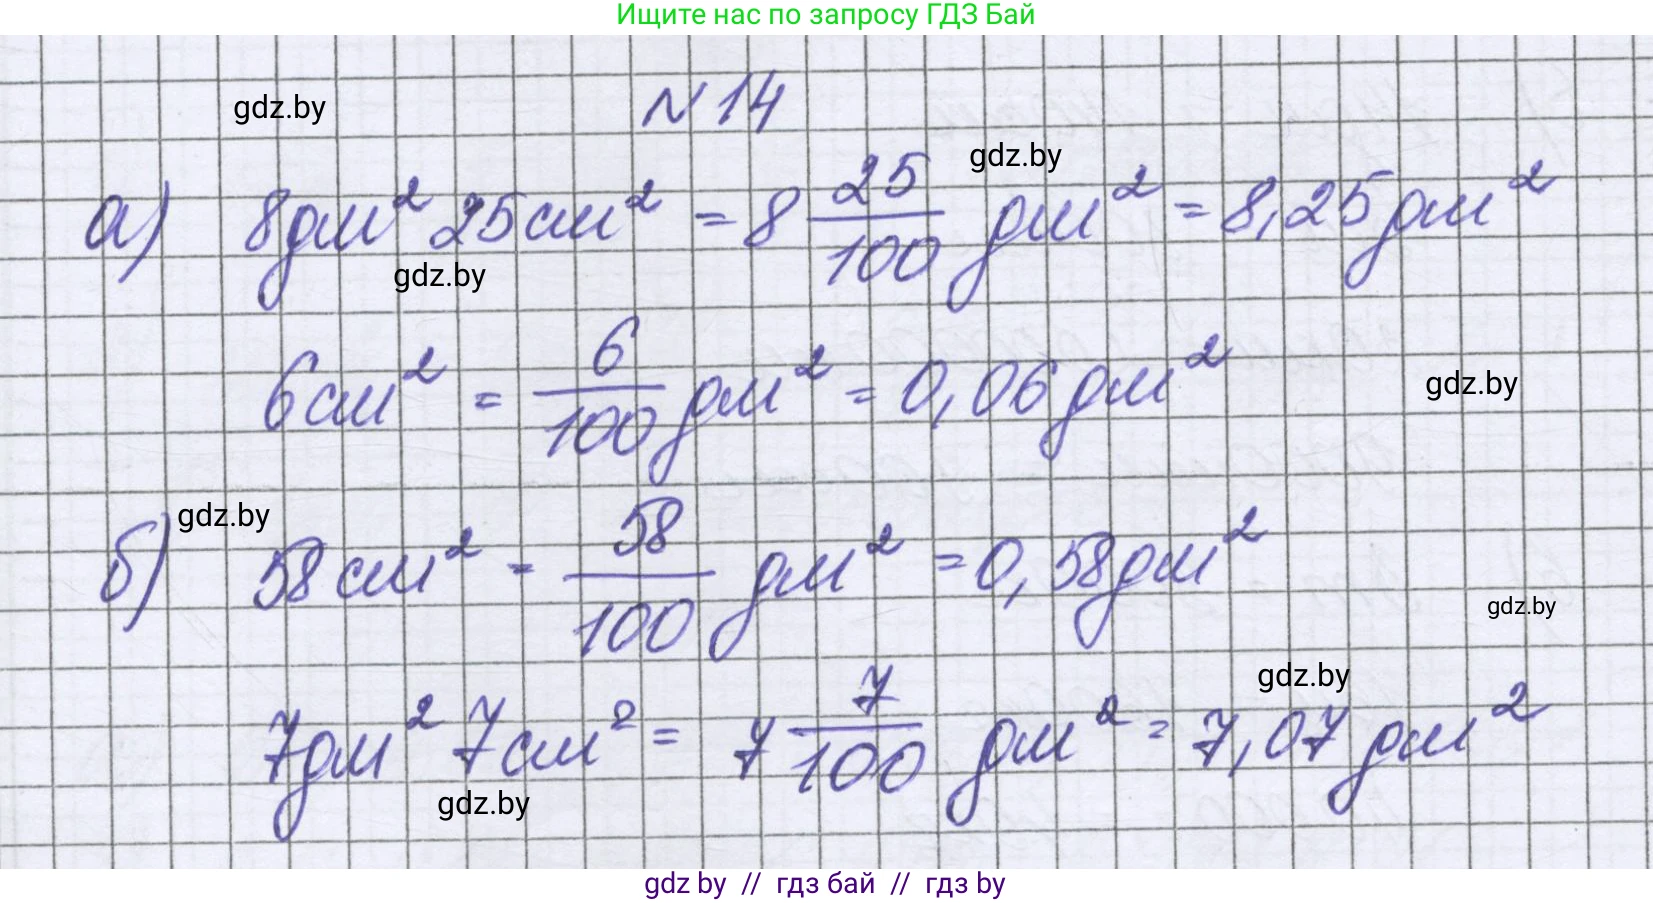 Ищите нас по запросу ГДЗ Бай
N 14
gdz.by
gdz.by
а) 8дм² 25см² = 8 25/100 дм² = 8,25дм²
gdz.by
6см² = 6/100 дм² = 0,06дм²
gdz.by
gdz.by
б) 58см² = 58/100 дм² = 0,58дм²
gdz.by
gdz.by
7дм² 7см² = 7 7/100 дм² = 7,07дм²
gdz.by
gdz by // гдз бай // гдз by